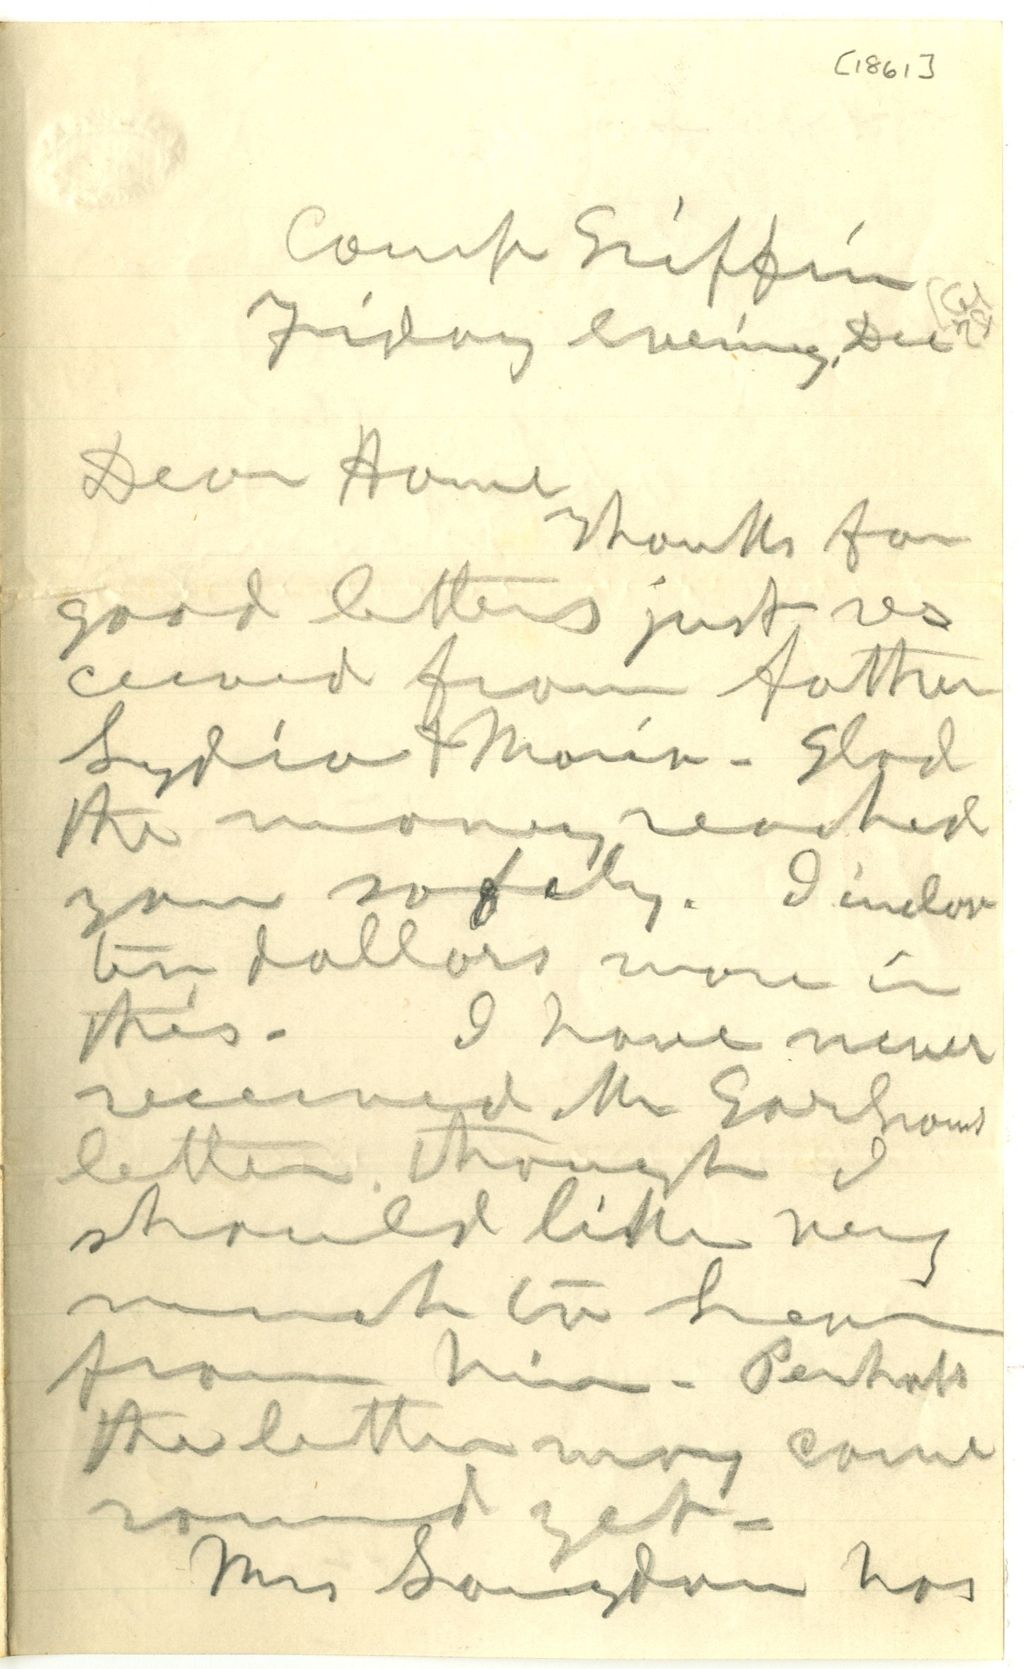 [1861]
Camp Griffin
Friday evening, Dec
Dear Home
Thanks for
good letters just re
ceived from father
Lydia & Maria - Glad
the money reached
you safely. I inclose
ten dollars more in
this - I have never
received Mr
letter, though I
should like very
much to hear
from him - Perhaps
the letter may come
round yet -
Mrs Langdon has